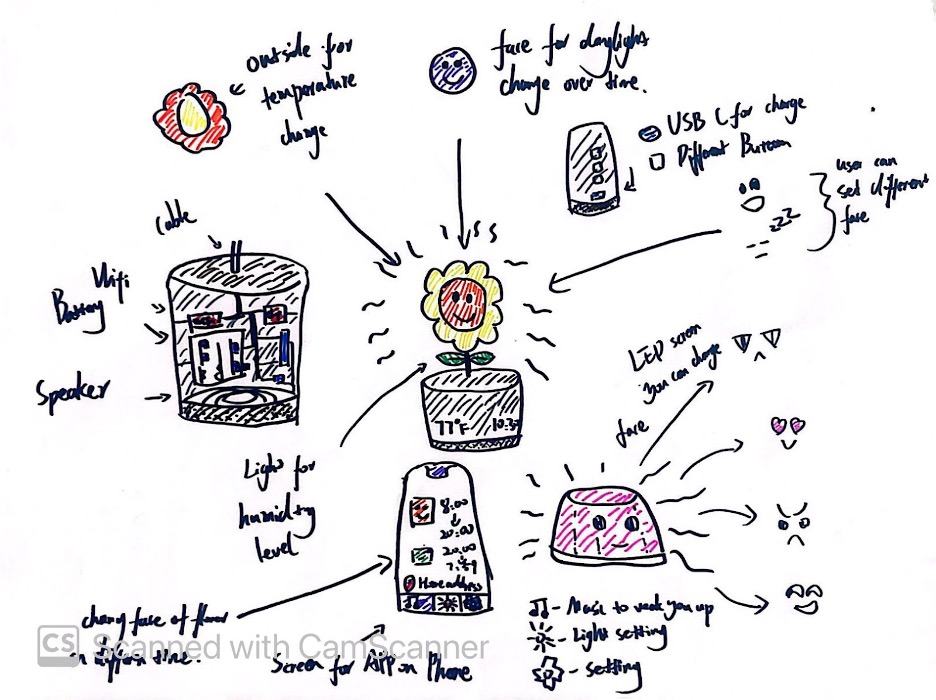 outside for
temperature
change
face for daylight
change over time.
USB C for charge
Different
user can
set different
face
zzz
cable
Wifi
Battery
Speaker
77°F 10:3
Light for
humidity
level
LED screen
you can change
face
8:00
20:00
20:00
7:59
Home address
change face of flower
in different time.
Screen for APP on Phone
- Music to wake you up
- Light setting
- setting
CS Scanned with CamScanner